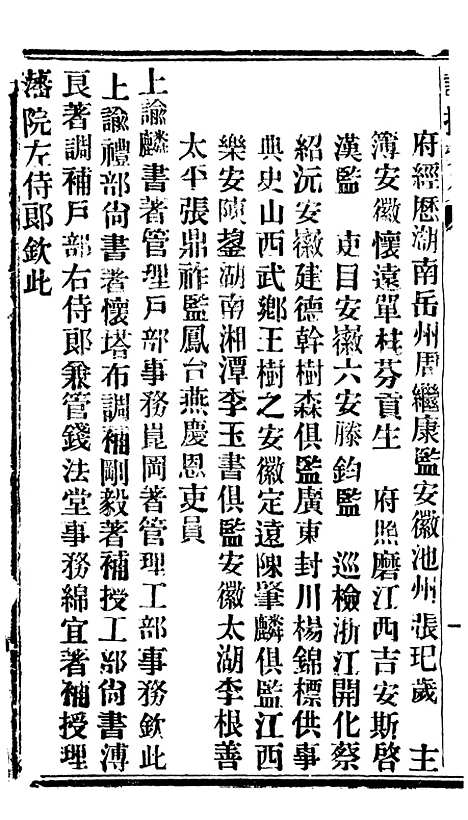 府經歷湖南岳州周繼康監安徽池州張玘歲　主
簿安徽懷遠單桂芬貢生　府照磨江西吉安斯啓
漢監　吏目安徽六安滕鈞監　巡檢浙江開化蔡
紹沅安徽建德幹樹森俱監廣東封川楊錦標供事
典史山西武鄉王樹之安徽定遠陳肇麟俱監江西
樂安陳鋆湖南湘潭李玉書俱監安徽太湖李根善
太平張鼎祚監鳳台燕慶恩吏員
上諭麟書著管理戶部事務崑岡著管理工部事務欽此
上諭禮部尚書著懷塔布調補剛毅著補授工部尚書溥
良著調補戶部右侍郎兼管錢法堂事務綿宜著補授理
藩院左侍郎欽此